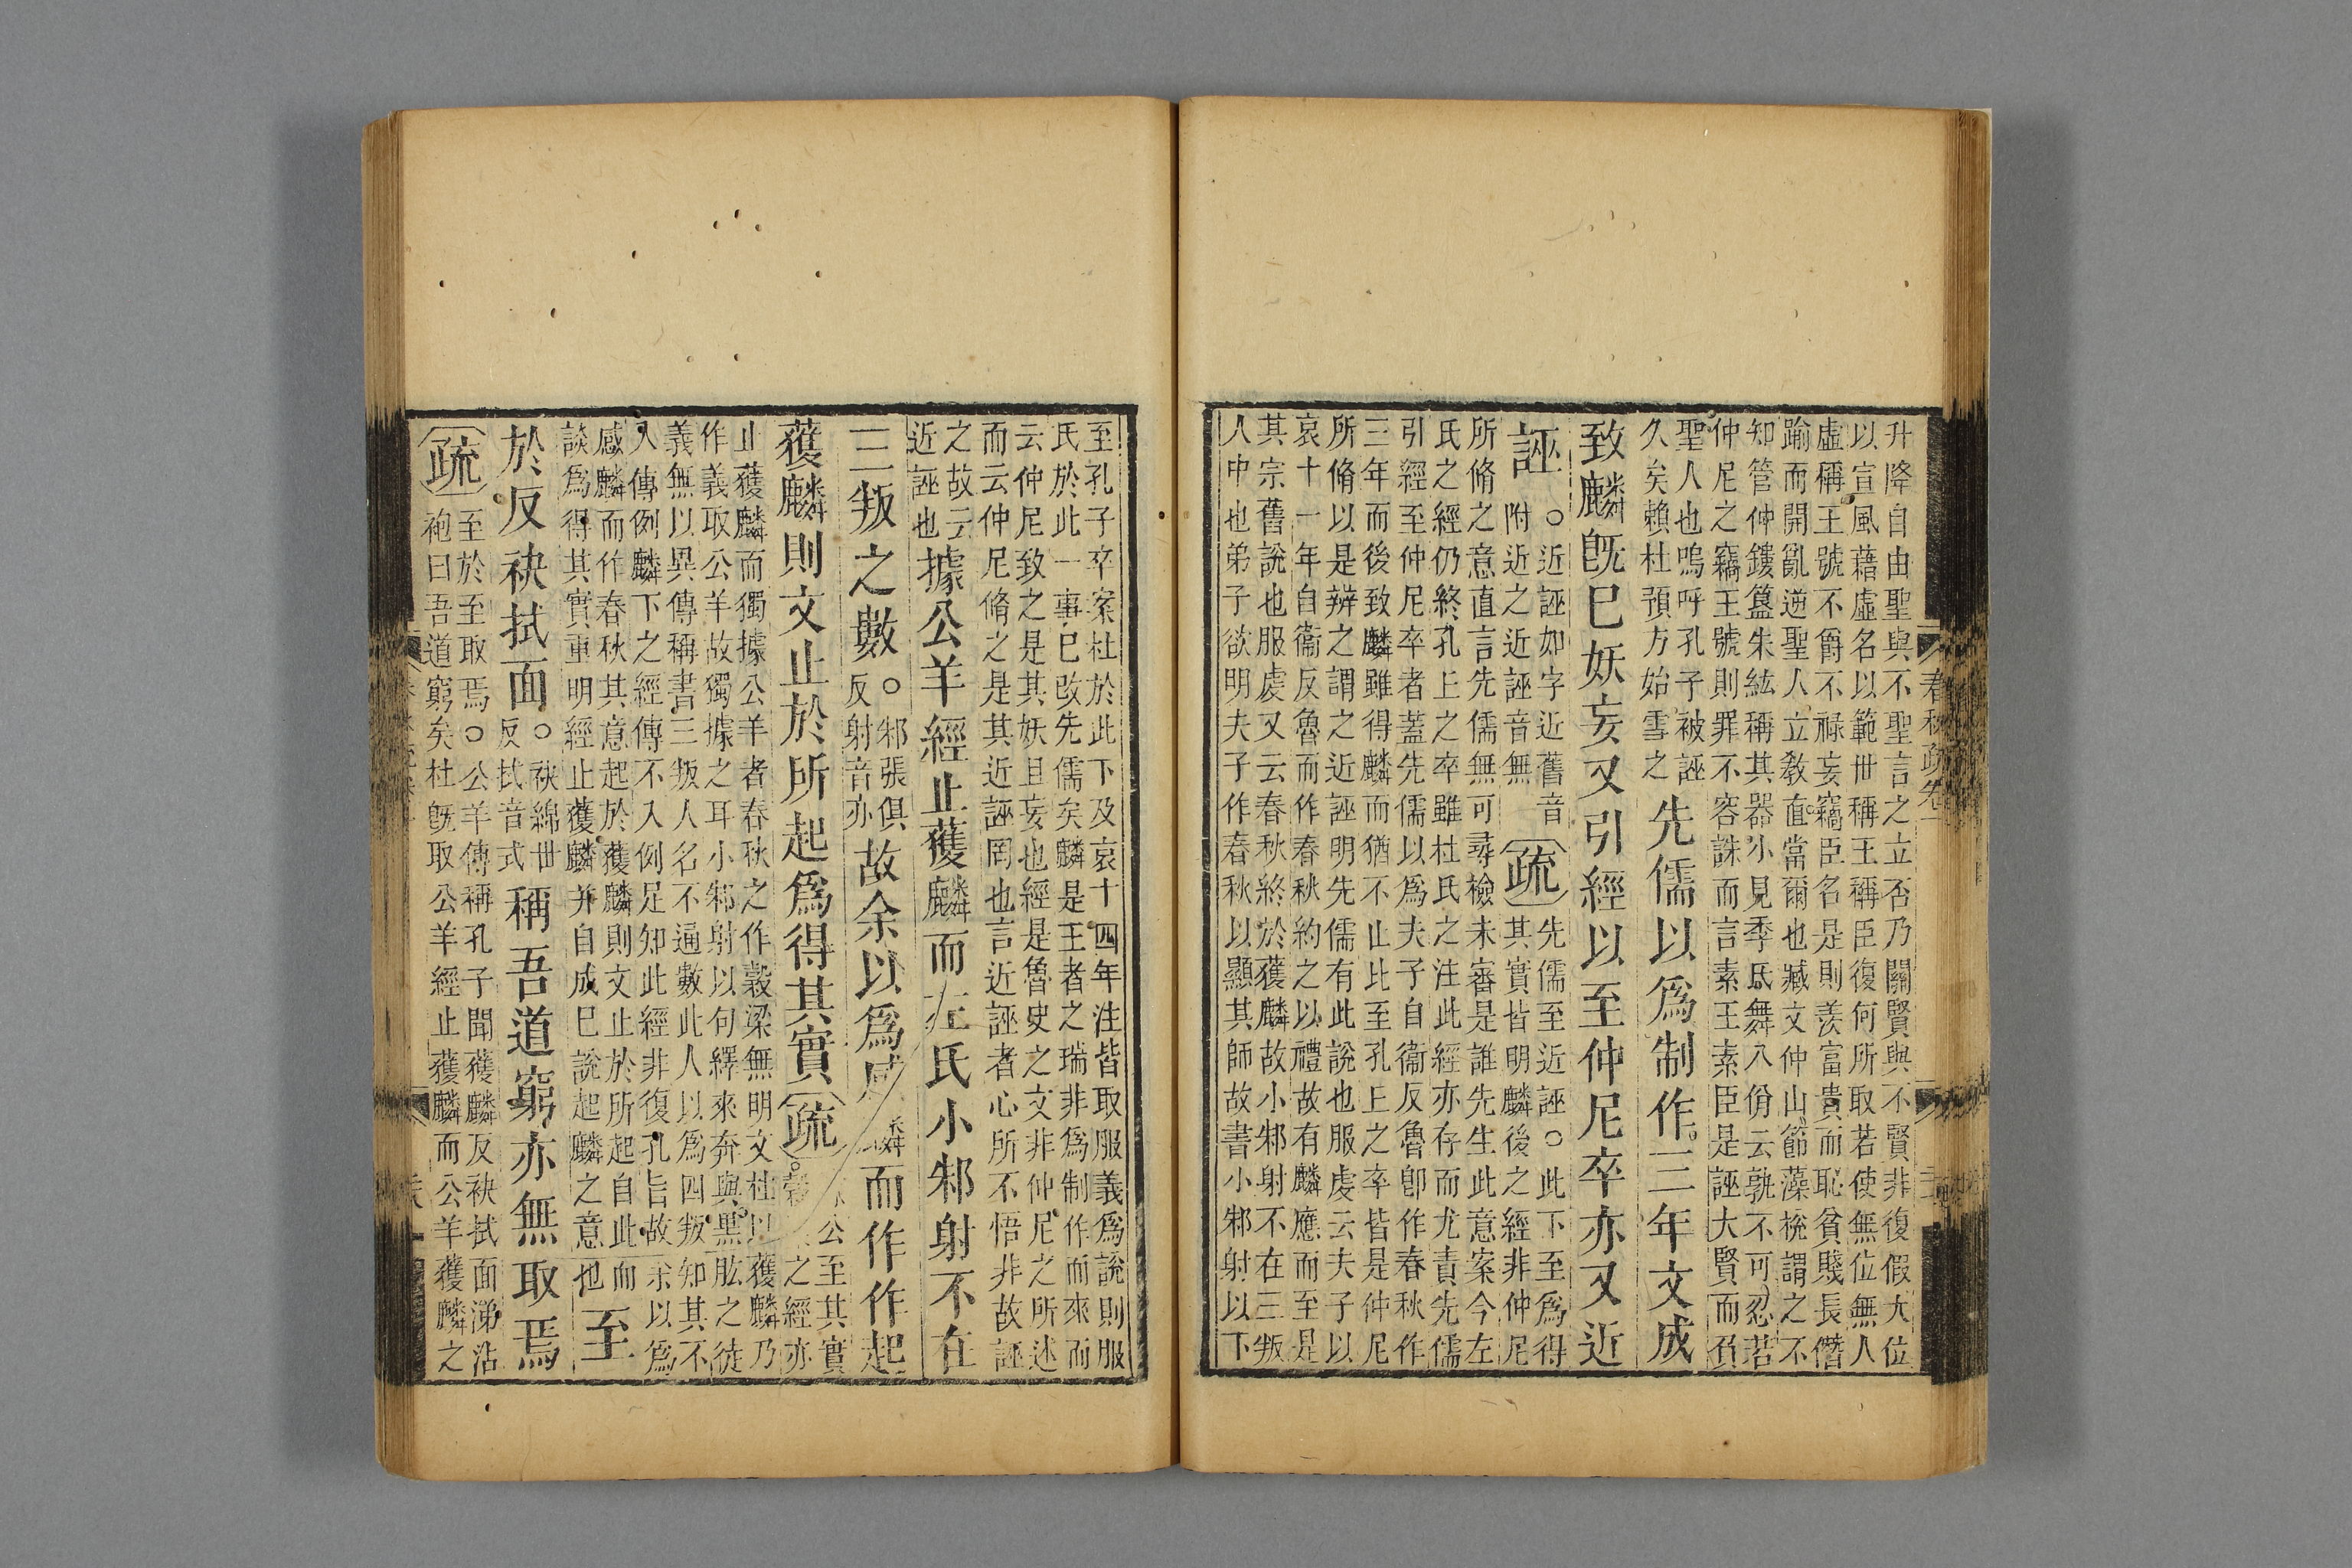 升降自由聖與不聖言之立否乃關賢與不賢非復假大位
以宣風藉虛名以範世稱王稱臣復何所取若使無位無人
虛稱王號不爵不祿妄竊臣名是則羨富貴而恥貧賤長僭
踰而開亂逆聖人立教直當爾也臧文仲山節藻梲謂之不
知管仲鏤簋朱紘稱其器小見季氏舞八佾云孰不可忍若
仲尼之竊王號則罪不容誅而言素王素臣是誣大賢而負
聖人也嗚呼孔子被誣
久矣賴杜預方始雪之
先儒以爲制作三年文成
致麟旣巳妖妄又引經以至仲尼卒亦又近
誣
○近誣如字近舊音
附近之近誣音無
疏
先儒至近誣○此下至爲得
其實皆明麟後之經非仲尼
所脩之意直言先儒無可尋檢未審是誰先生此意案今左
氏之經仍終孔上之卒雖杜氏之注此經亦存而尤責先儒
引經至仲尼卒者蓋先儒以爲夫子自衞反魯卽作春秋作
三年而後致麟雖得麟而猶不止比至孔上之卒皆是仲尼
所脩以是辨之謂之近誣明先儒有此說也服虔云夫子以
哀十一年自衞反魯而作春秋約之以禮故有麟應而至是
其宗舊說也服虔又云春秋終於獲麟故小邾射不在三叛
人中也弟子欲明夫子作春秋以顯其師故書小邾射以下
至孔子卒案杜於此下及哀十四年注皆取服義爲說則服
氏於此一事巳改先儒矣麟是王者之瑞非爲制作而來而
云仲尼致之是其妖且妄也經是魯史之文非仲尼之所述
而云仲尼脩之是其近誣罔也言近誣者心所不悟非故誣
之故云
近誣也
據公羊經止獲麟而左氏小邾射不在
三叛之數
○邾張俱
反射音亦
故余以爲感麟而作作起
獲麟則文止於所起爲得其實
疏
公至其實
○穀之經亦
止獲麟而獨據公羊者春秋之作穀梁無明文杜以獲麟乃
作義取公羊故獨據之耳小邾射以句繹來奔與黑肱之徒
義無以異傳稱書三叛人名不通數此人以爲四叛知其不
入傳例麟下之經傳不入例足知此經非復孔旨故余以爲
感麟而作春秋其意起於獲麟則文止於所起自此而
談爲得其實重明經止獲麟幷自成巳說起麟之意也
至
於反袂拭面
○袂綿世
反拭音式
稱吾道窮亦無取焉
疏
至於至取焉○公羊傳稱孔子聞獲麟反袂拭面涕沾
袍曰吾道窮矣杜旣取公羊經止獲麟而公羊獲麟之